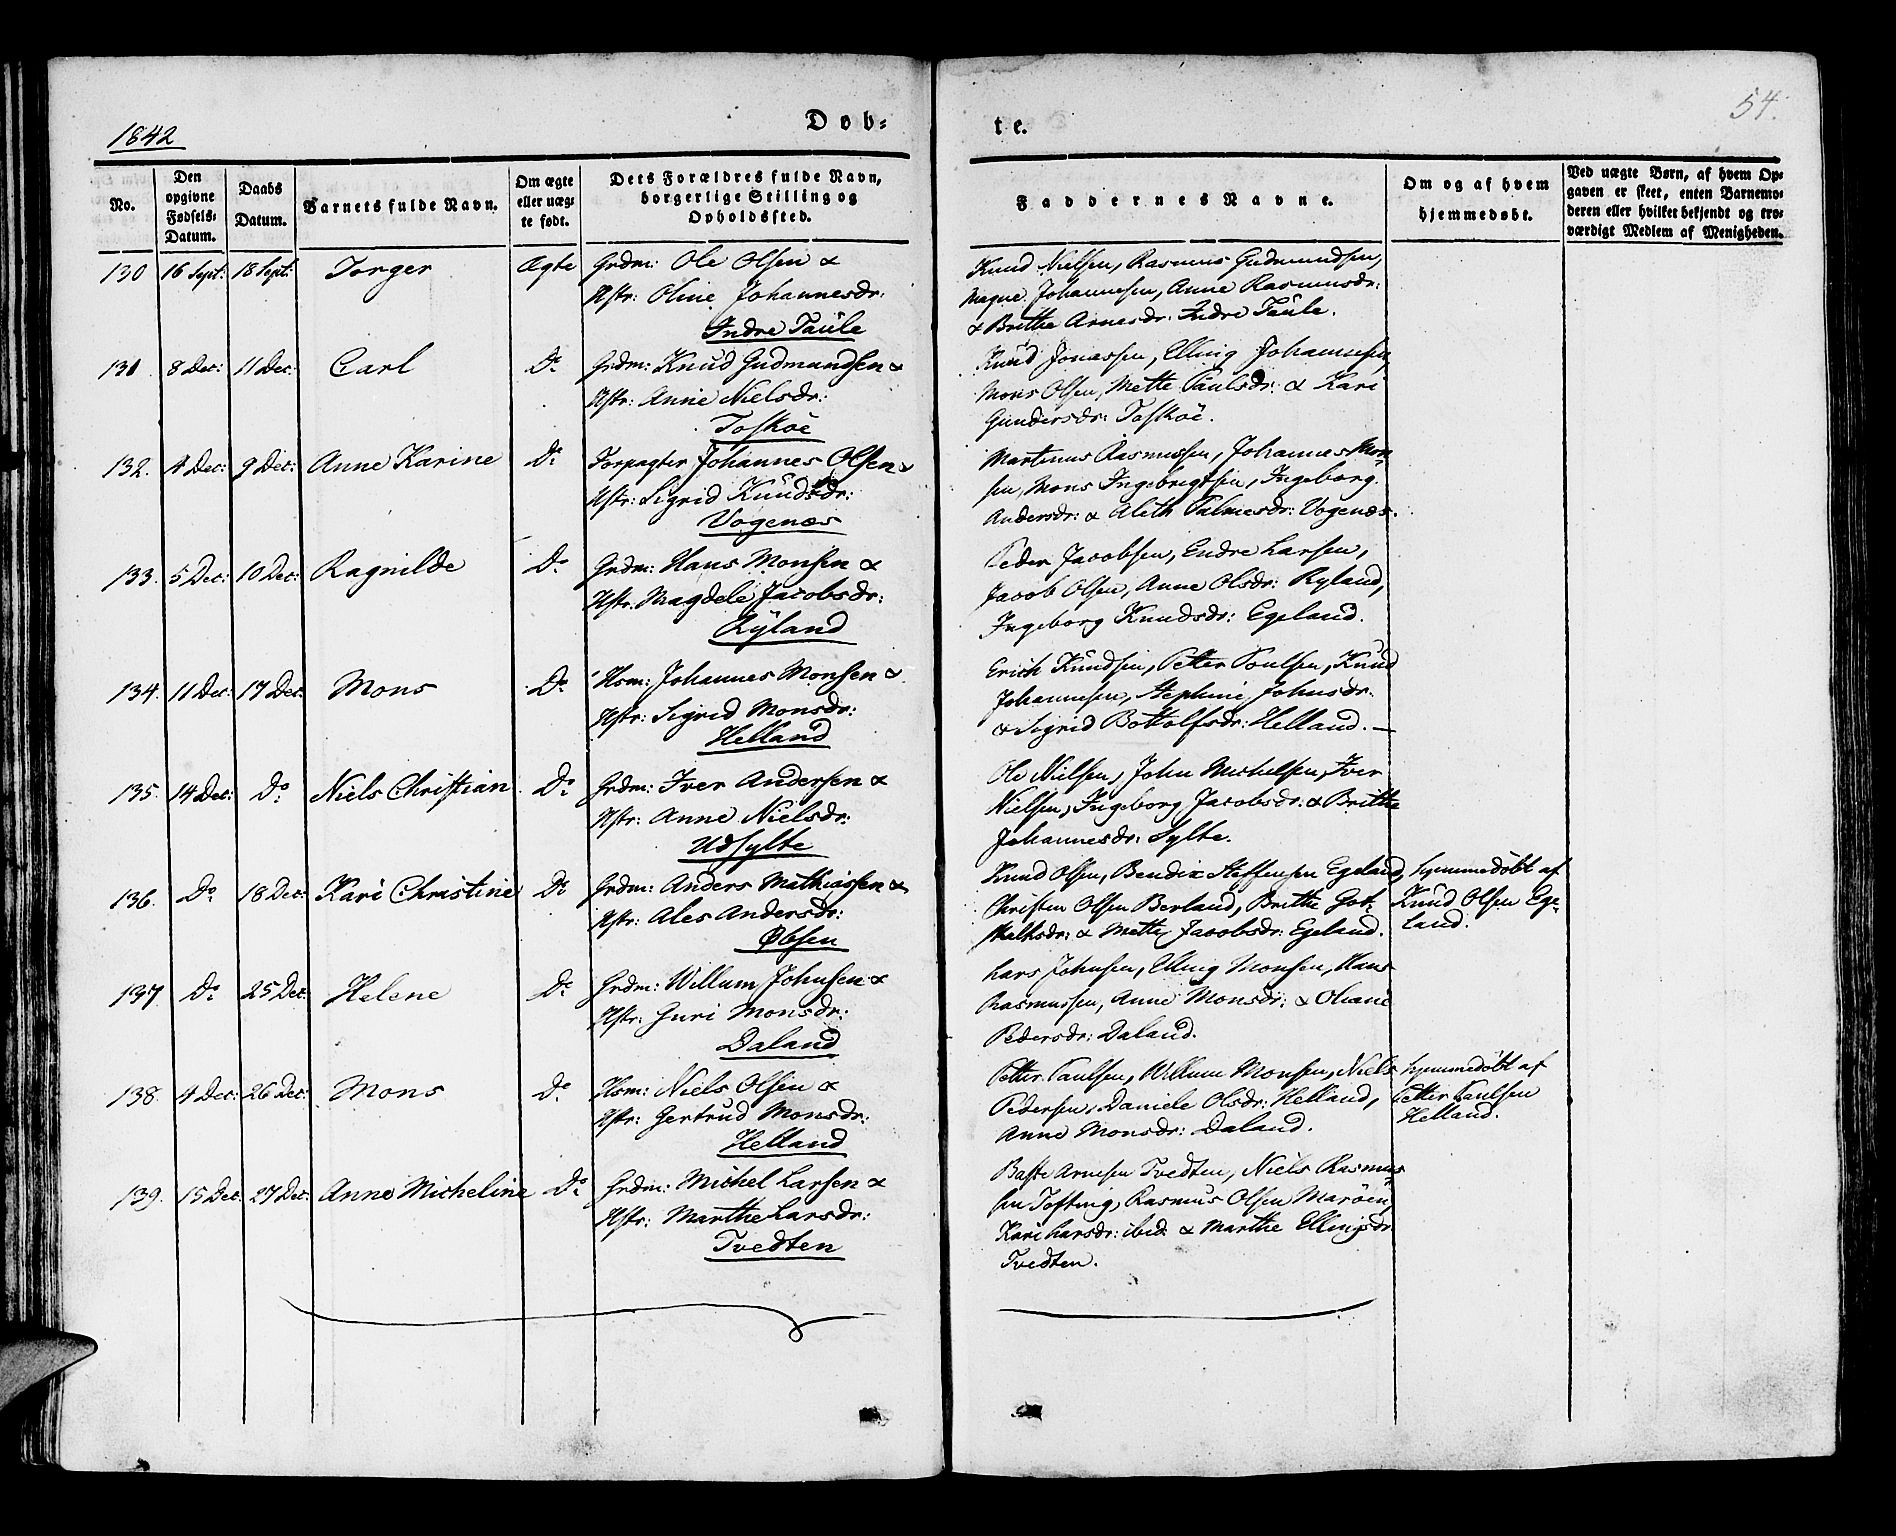 1842
Døb-
te.
54.
No.
Den opgivne Fødsels-Datum.
Daabs Datum.
Barnets fulde Navn.
Om ægte eller uægte født.
Dets Forældres fulde Navn, borgerlige Stilling og Opholdssted.
Faddernes Navne.
Om og af hvem hjemmedøbt.
Ved uægte Børn, af hvem Opgaven er skeet, enten Barnemoderen eller hvilket bekjendt og troværdigt Medlem af Menigheden.
130 16 Sept: 18 Sept: Torger Ægte Grdm: Ole Olsen &
Hstr: Oline Johannesdr:
Indre Taule
Knud Nielsen, Rasmus Gudmundsen,
Magne Johannesen, Anne Rasmusdr:
& Brithe Arnesdr: Indre Taule.
131 8 Dec: 11 Dec: Carl Do Grdm: Knud Gudmundsen &
Hstr: Anne Nielsdr:
Toskøe
Knud Jonassen, Elling Johannesen,
Mons Olsen, Mette Paulsdr: & Kari
Gundersdr: Toskøe.
132. 4 Dec: 9 Dec: Anne Karine Do Forpagter Johannes Olsen &
Hstr: Sigrid Knudsdr:
Vogenæs
Martinus Rasmussen, Johannes Mon-
sen, Mons Ingebrigtsen, Ingeborg
Andersdr: & Aleth Palmesdr: Vogenæs.
133. 5 Dec: 10 Dec: Ragnilde Do Grdm: Hans Monsen &
Hstr. Magdele Jacobsdr:
Ryland
Peder Jacobsen, Endre Larsen,
Jacob Olsen, Anne Olsdr: Ryland,
Ingeborg Knudsdr: Egeland.
134. 11 Dec: 17 Dec: Mons Do Hsm: Johannes Monsen &
Hstr: Sigrid Monsdr:
Helland
Erich Knudsen, Petter Poulsen, Knud
Johannesen, Stephine Johnsdr.
& Sigrid Bottolfsdr: Helland.—
135. 14 Dec: Do Niels Christian Do Grdm: Iver Andersen &
Hstr: Anne Nielsdr:
Udsylte
Ole Nielsen, John Michelsen, Iver
Nielsen, Ingeborg Jacobsdr: & Brithe
Johannesdr: Sylte.
136. Do 18 Dec: Kari Christine Do Grdm: Anders Mathiassen &
Hstr: Ales Andersdr:
Øbsen
Knud Olsen, Bendix Steffensen Egeland,
Christen Olsen Berland, Brithe Got-
skalksdr: & Mette Jacobsdr: Egeland.
hjemmedøbt af
Knud Olsen Ege-
land.
137. Do 25 Dec: Helene Do Grdm: Willum Johnsen &
Hstr: Guri Monsdr:
Daland
Lars Johnsen, Elling Monsen, Hans
Rasmussen, Anne Monsdr: & Oliane
Pedersdr: Daland.
138. 4 Dec: 26 Dec: Mons Do Hsm: Niels Olsen &
Hstr: Gertrud Monsdr:
Helland
Petter Paulsen, Willum Monsen, Niels
Pedersen, Daniele Olsdr: Helland,
Anne Monsdr: Daland.
hjemmedøbt af
Petter Paulsen
Helland.
139. 15 Dec: 27 Dec: Anne Micheline Do Grdm: Michel Larsen &
Hstr: Marthe Larsdr:
Tvedten
Baste Arnesen Tvedten, Niels Rasmus-
sen Tofting, Rasmus Olsen Marøen,
Kari Larsdr: ibid & Marthe Ellingsdr
Tvedten.